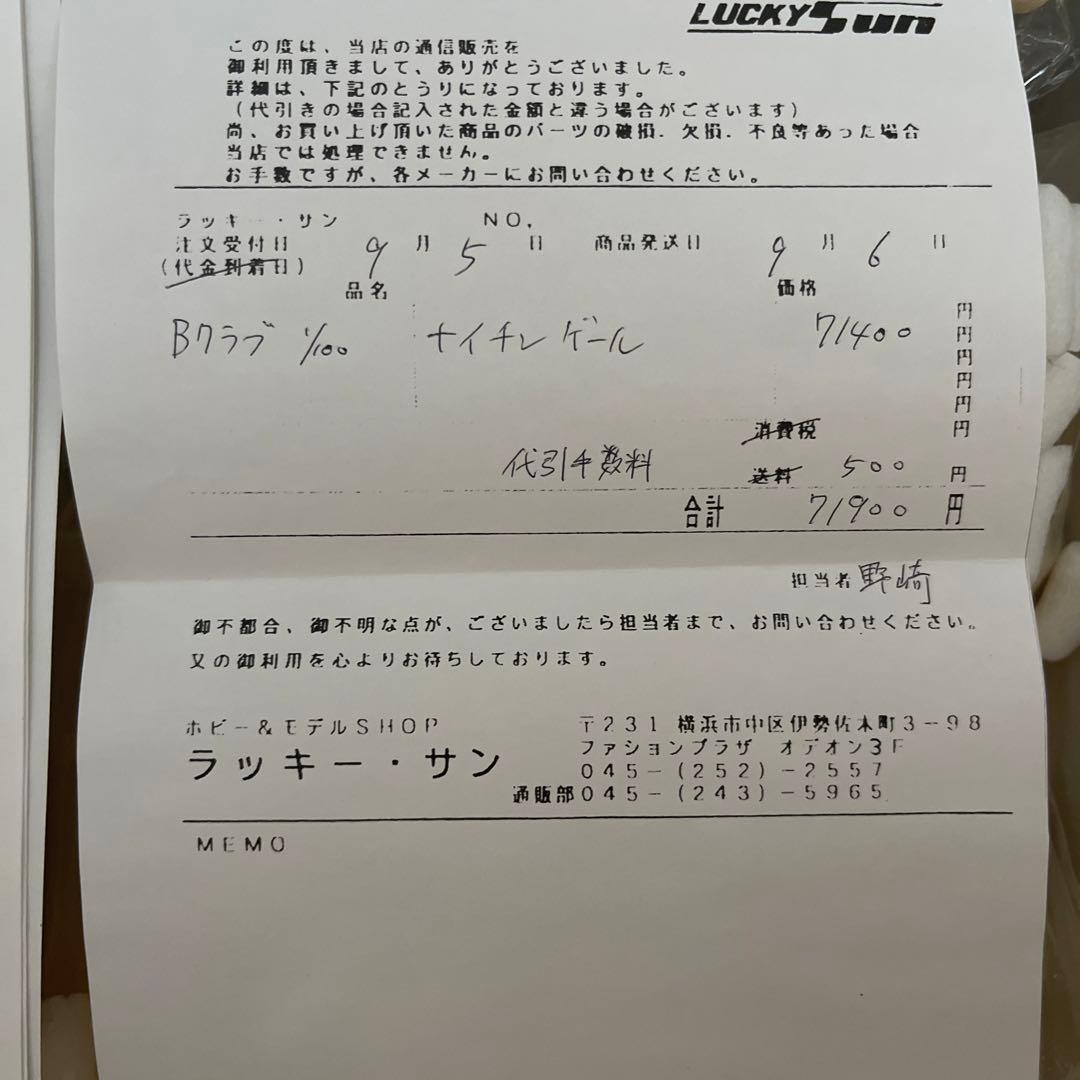 LUCKY Sun
この度は、当店の通信販売を
御利用頂きまして、ありがとうございました。
詳細は、下記のとうりになっております。
(代引きの場合記入された金額と違う場合がございます)
尚、お買い上げ頂いた商品のパーツの破損．欠損．不良等あった場合
当店では処理できません。
お手数ですが、各メーカーにお問い合わせください。
ラッキー・サン NO.
注文受付日 9 月 5 日 商品発送日 9 月 6 日
(代金到着日)
品名 価格
円
Bクラブ 1/100 ナイチンゲール 71400 円
円
円
円
消費税 円
代引手数料 送料 500 円
合計 71900 円
担当者 野崎
御不都合、御不明な点が、ございましたら担当者まで、お問い合わせください。
又の御利用を心よりお待ちしております。
ホビー&モデルSHOP
ラッキー・サン
〒231 横浜市中区伊勢佐木町3-98
ファションプラザ オデオン3F
045-(252)-2557
通販部045-(243)-5965
MEMO